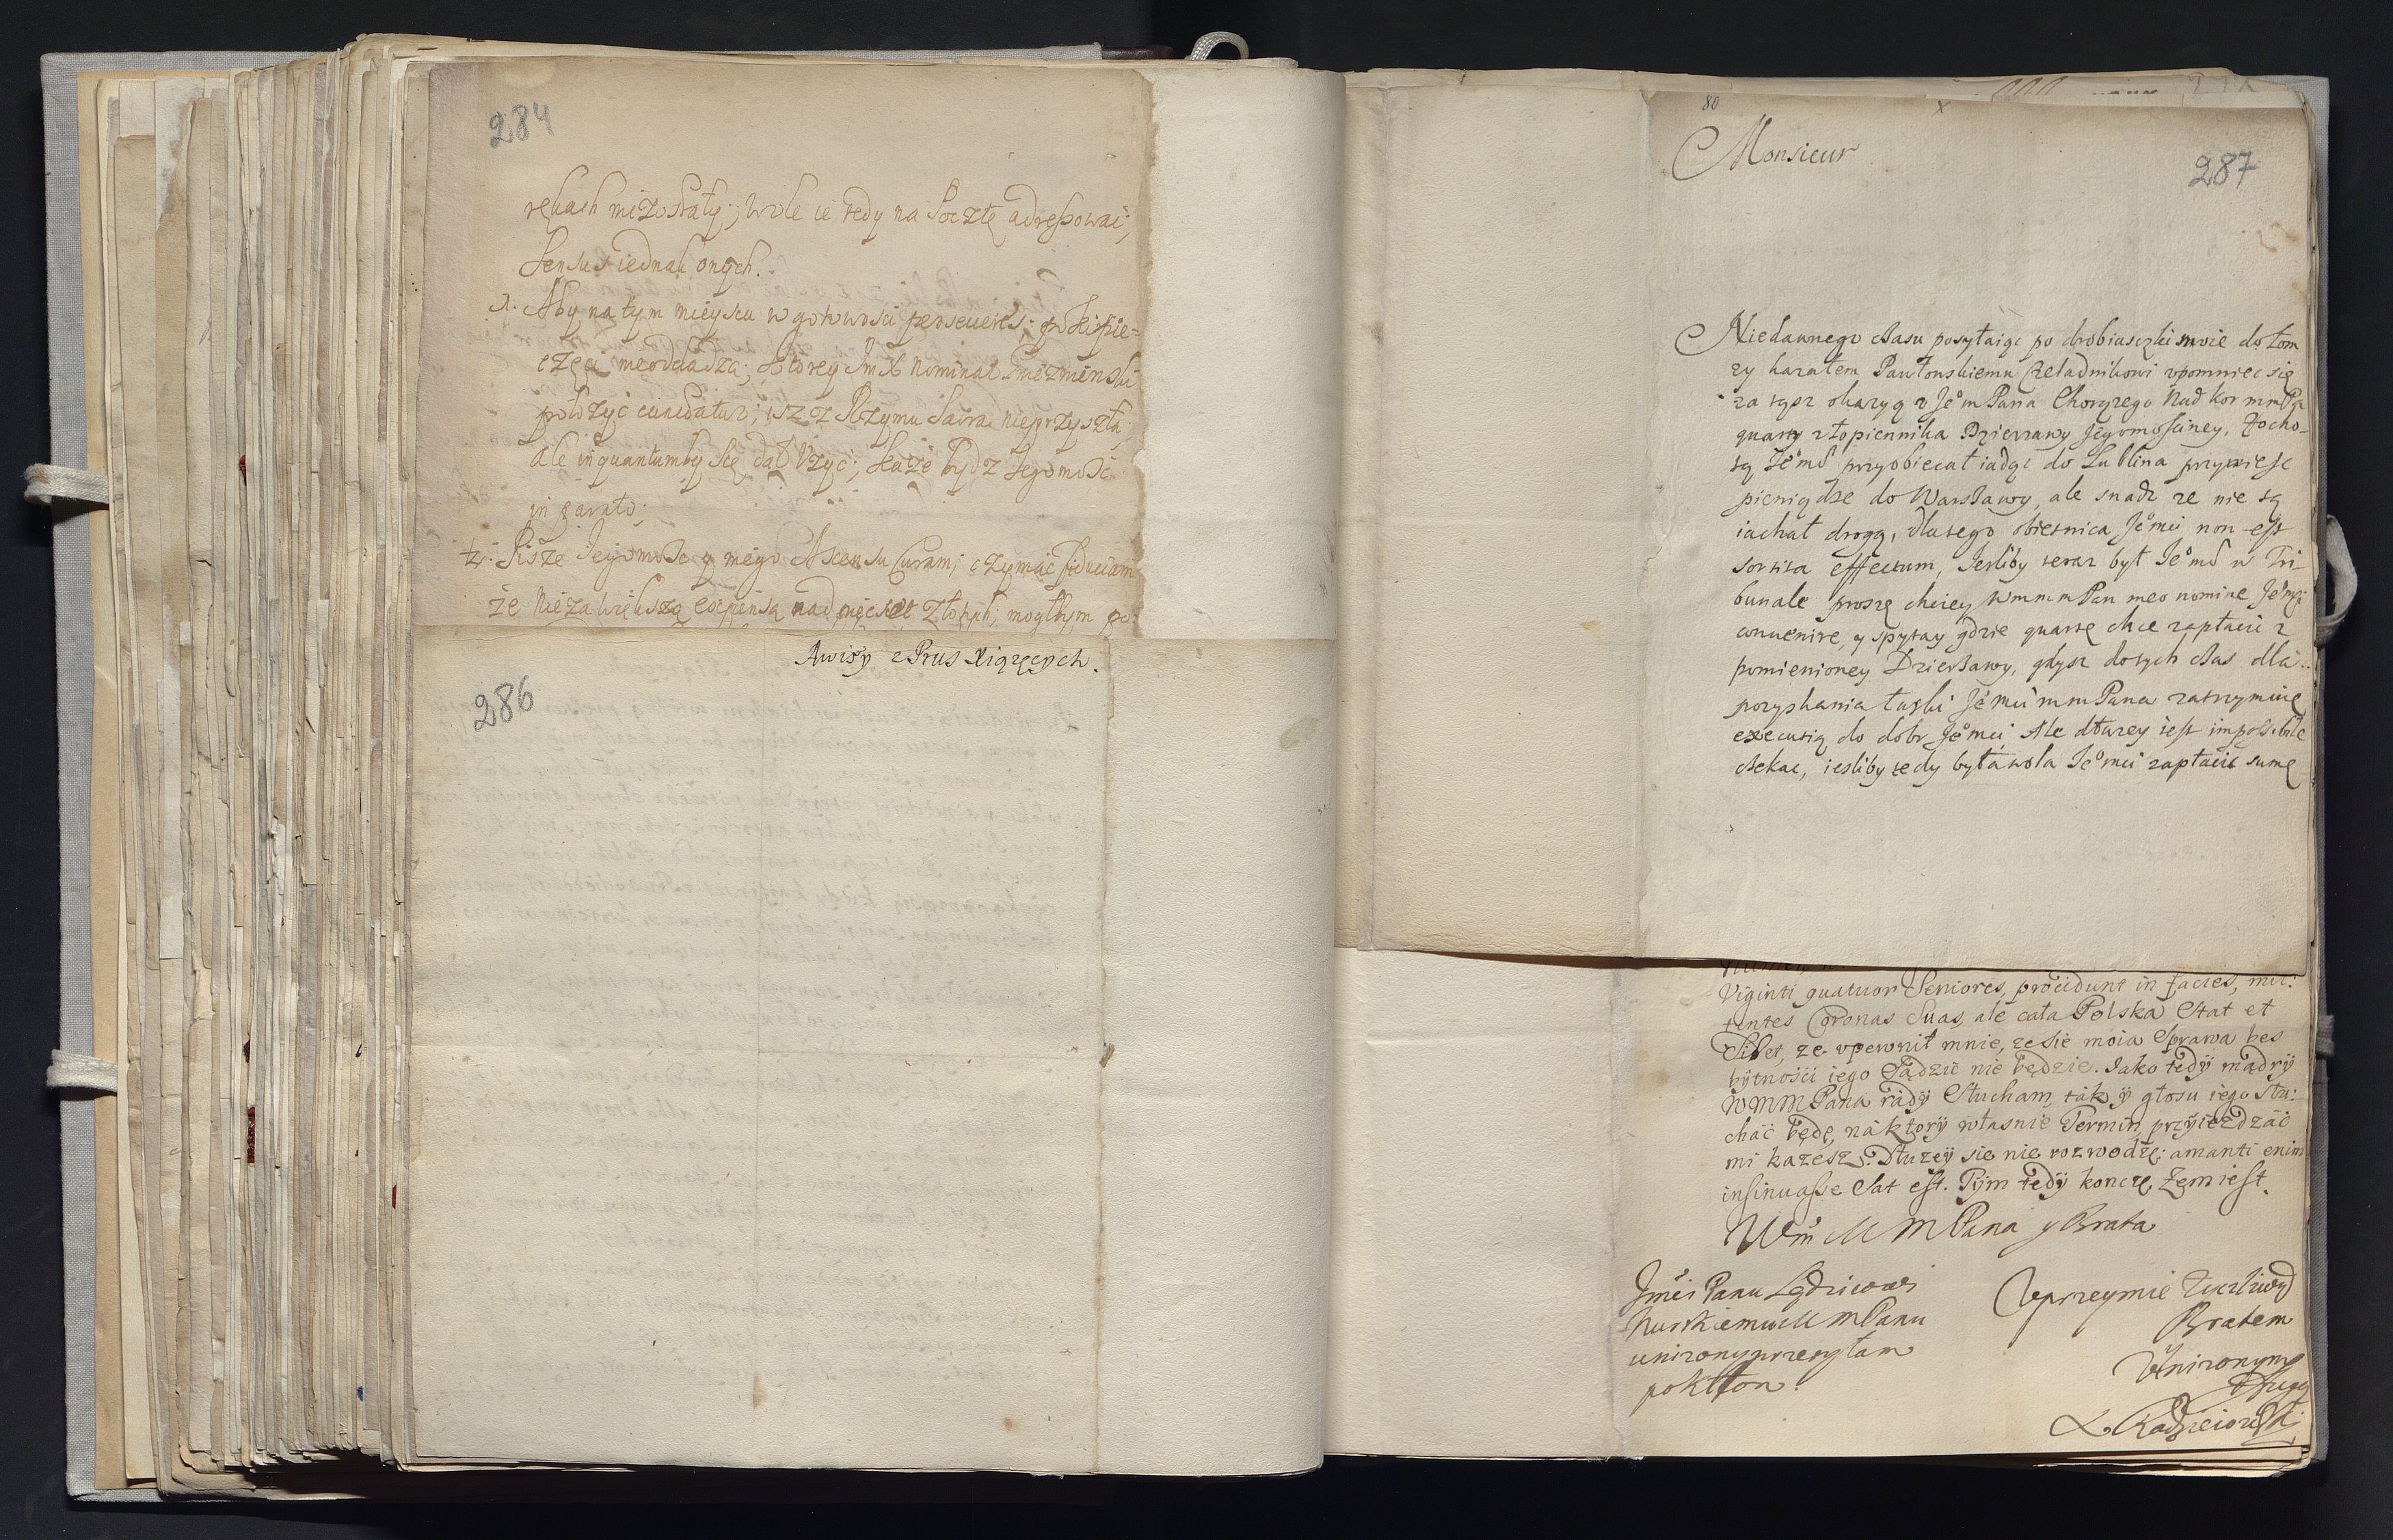 284
rękach mi zostały; wole ie tedy na Pocztę adressować;
Sensus iednak onych.
1. Aby na tym mieyscu w gotowosci
częci nieoddadzą; ktorey JmX nominat
położyć ; iż z Rzymu nieprzyszła;
Ale inquantumby się dał Użyc; każe bydz Jegomosc
in parato;
2. Pisze Jegomosc y mego Ascensu curam; czymiąc fiduciam
że niezawielką expensą nad pięcset Złotych; mogłbym po:
Awisy z Prus Xiążęcych.
286
80
x
Monsieur
287
Niedawnego czasu posyłaiąc po drobiaszki swoie do Łom
zy kazałem Pawłowskiemu Czeladnikowi vpomniec się
za tąsz okazyą v Jeom Pana Chorązego Nad kor mmPa
quarty z Łopiennika Dzierzawy Jegomosciney,
tą Jemć przyobiecał iadąc do Lublina przywiesc
pieniądze do Warszawy, ale snadz ze nie tą
iachał drogą, dlatego obietnica Jemci non est
sortita effectum, Jesliby teraz był Jemć w Tri-
bunale proszę chciey WmmmPan meo nomine Jemci
conuenire, y spytay gdzie quartę chce zapłacić z
pomienioney Dzierzawy, gdysz dotych czas dla
pozyskania łaski Jemci mmPana zatrzymuię
executią do dobr Jemci Ale dłuzey iest impossibile
czekac, iesliby tedy była wola Jemci zapłacic sumę
Viginti quatuor Seniores, procidunt in facies, mit:
tentes Coronas Suas, ale cała Polska Stat et
Silet, ze vpewnił mnie, ze sie moia Sprawa bes
bÿtności iego Sądzić nie będzie. Jako tedÿ mądrÿ
WMMPana radÿ Słucham, tak ÿ głosu iego Słu:
chać będę, na ktorÿ własnie Termin, przÿiezdzać
mi kazesz. Dłuzeÿ sie nie rozwodzę: amanti enim
insinuasse Sat est. Tÿm tedÿ koncze, Zem iest
Wm M M Pana y Brata
Jmći Panu Sędziemu
Nurskiemu M M Panu
unizony przesyłam
pokłon.
Uprzeymie Zyczliwy
Bratem
Unizonym
Sługą
Radzieiowski